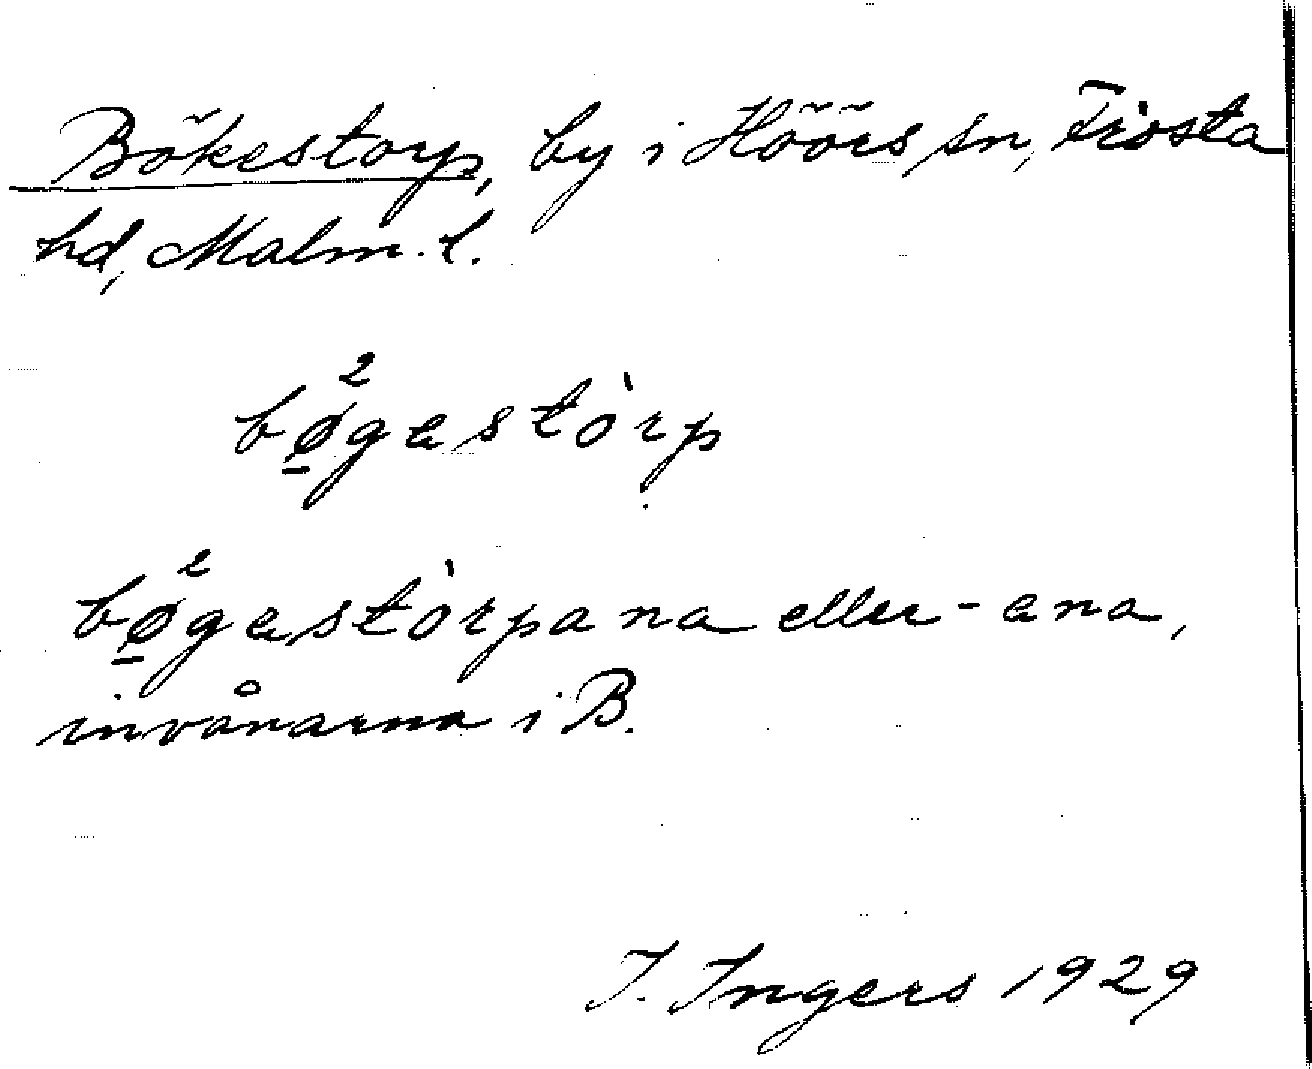 Bökestorp, by i Höörs sn, Frosta
hd, Malm. l.
bø̱²gastò̀rp
bø̱²gastò̀rpana eller -ana,
invånarna i B.
I. Ingers 1929